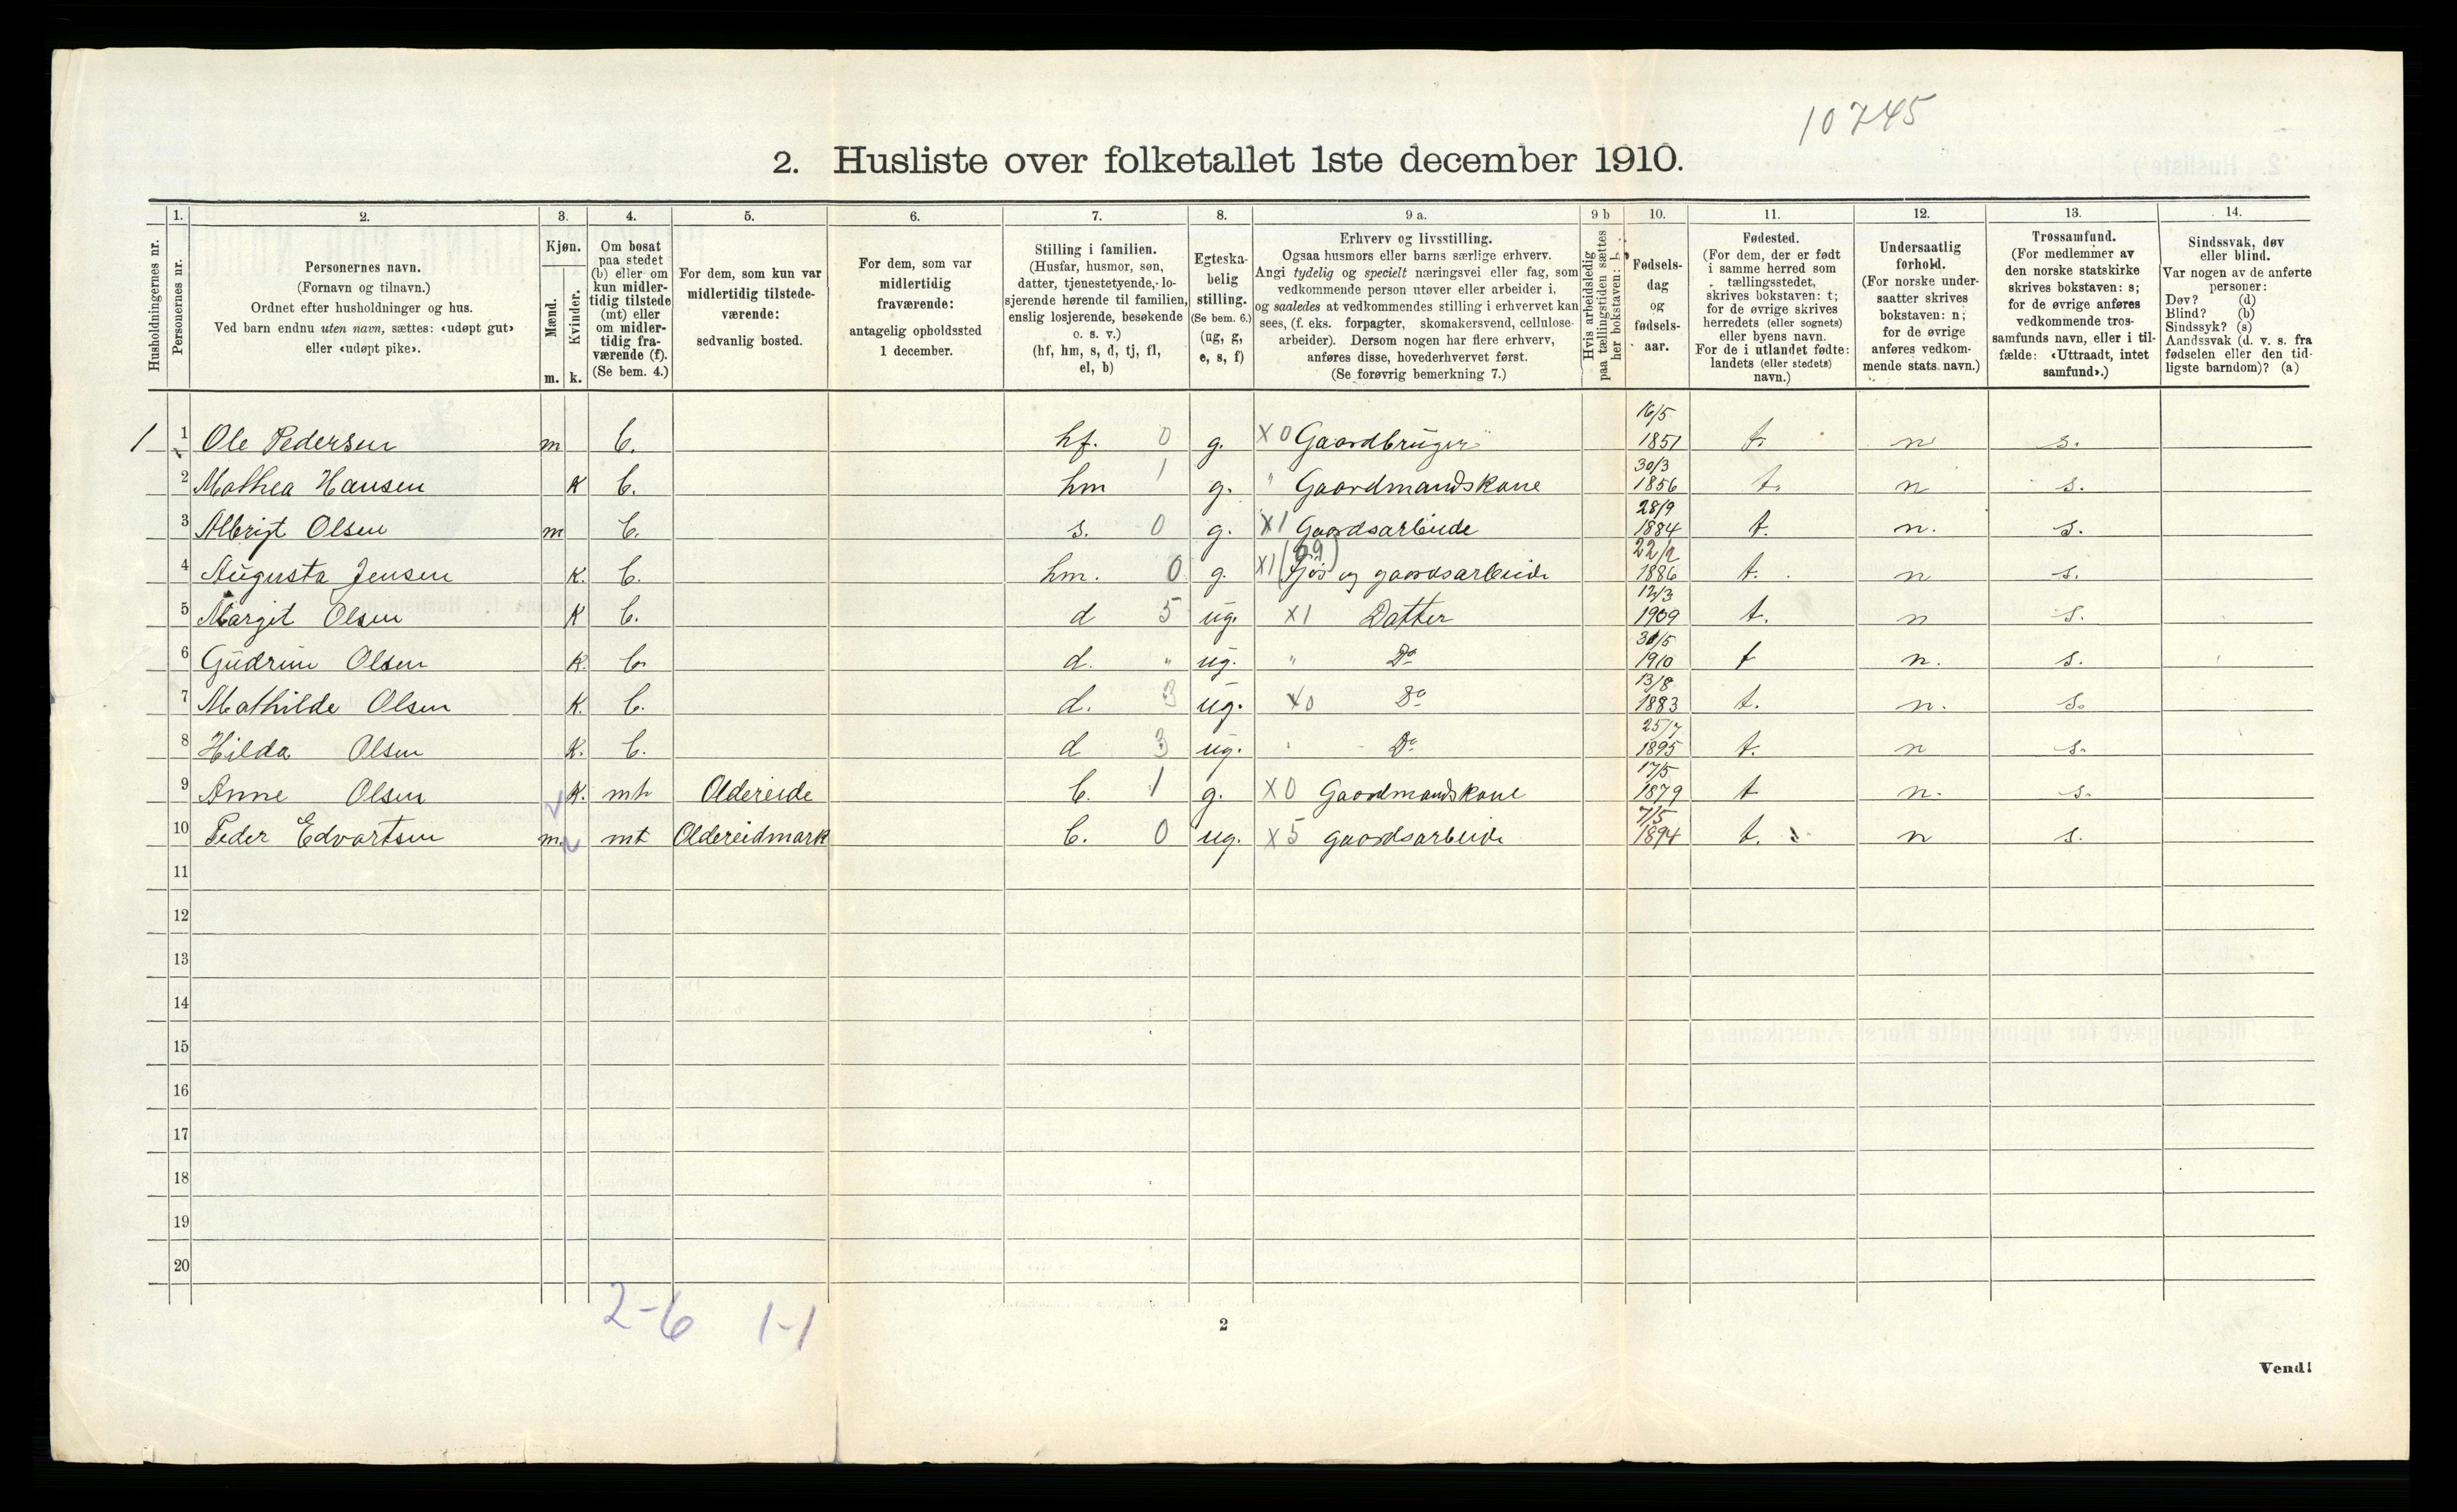 10745
2. Husliste over folketallet 1ste december 1910.
Husholdningernes nr.
1. Personernes nr.
2. Personernes navn.
(Fornavn og tilnavn.)
Ordnet efter husholdninger og hus.
Ved barn endnu uten navn, sættes: «udøpt gut»
eller «udøpt pike».
3. Kjøn.
Mænd. m.
Kvinder. k.
4. Om bosat
paa stedet
(b) eller om
kun midler-
tidig tilstede
(mt) eller
om midler-
tidig fra-
værende (f).
(Se bem. 4.)
5. For dem, som kun var
midlertidig tilstede-
værende:
sedvanlig bosted.
6. For dem, som var
midlertidig
fraværende:
antagelig opholdssted
1 december.
7. Stilling i familien.
(Husfar, husmor, søn,
datter, tjenestetyende, lo-
sjerende hørende til familien,
enslig losjerende, besøkende
o. s. v.)
(hf, hm, s, d, tj, fl,
el, b)
8. Egteska-
belig
stilling.
(Se bem. 6.)
(ug, g,
e, s, f)
9 a. Erhverv og livsstilling.
Ogsaa husmors eller barns særlige erhverv.
Angi tydelig og specielt næringsvei eller fag, som
vedkommende person utøver eller arbeider i,
og saaledes at vedkommendes stilling i erhvervet kan
sees, (f. eks. forpagter, skomakersvend, cellulose-
arbeider). Dersom nogen har flere erhverv,
anføres disse, hovederhvervet først.
(Se forøvrig bemerkning 7.)
9 b Hvis arbeidsledig
paa tællingstiden sættes
her bokstaven: l.
10. Fødsels-
dag
og
fødsels-
aar.
11. Fødested.
(For dem, der er født
i samme herred som
tællingsstedet,
skrives bokstaven: t;
for de øvrige skrives
herredets (eller sognets)
eller byens navn.
For de i utlandet fødte:
landets (eller stedets)
navn.)
12. Undersaatlig
forhold.
(For norske under-
saatter skrives
bokstaven: n;
for de øvrige
anføres vedkom-
mende stats navn.)
13. Trossamfund.
(For medlemmer av
den norske statskirke
skrives bokstaven: s;
for de øvrige anføres
vedkommende tros-
samfunds navn, eller i til-
fælde: «Uttraadt, intet
samfund».)
14. Sindssvak, døv
eller blind.
Var nogen av de anførte
personer:
Døv? (d)
Blind? (b)
Sindssyk? (s)
Aandssvak (d. v. s. fra
fødselen eller den tid-
ligste barndom)? (a)
1 1 Ole Pedersen m b. hf. 0 g. X0 Gaardbruger 16/5 1851 t. n s.
2 Mathea Hansen K b. hm 1 g. " Gaardmandskone 30/3 1856 t. n s.
3 Albrigt Olsen m b. s. 0 g. X1 Gaardsarbeide 28/9 1884 t. n. s.
4 Augusta Jensen K. b. hm. 0 g. X1 Fjös og gaardsarbeide 1886 t. n s.
5 Margit Olsen K b. d 5 ug. X1 Datter 12/3 1909 t. n s.
6 Gudrun Olsen K. b. d. " ug. " Do 1910 t n. s.
7 Mathilde Olsen K. b. d. 3 ug. X0 Do 13/8 1883 t. n. s.
8 Hilda Olsen K. b. d 3 ug. " Do 25/7 1895 t. n s.
9 Anne Olsen K. mt Oldereide b. 1 g. X0 Gaardmandskone 17/5 1879 t n. s.
10 Peder Edvartsen m. mt Oldereidmark b. 0 ug. X5 gaardsarbeide 7/5 1894 t. n s.
11
12
13
14
15
16
17
18
19
20
2-6 1-1
2
Vend!